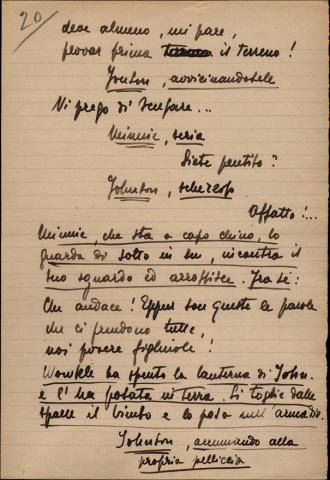 20
deve almeno, mi pare,
provar prima il terreno!
Jonson, avvicinandosele
Vi prego di scusare...
Minnie, seria
Siete pentito?
Johnson, scherzoso
Affatto!...
Minnie, che sta a capo chino, lo
guarda di sotto in su, incontra il
suo sguardo ed arrossisce. Fra sè:
Che audace! Eppur son queste le parole
che ci prendono tutte,
noi povere figliuole!
Wowkle ha spento la lanterna di John.
e l'ha posata in terra. Si toglie dalle
spalle il bimbo e lo posa sull'armadio.
Johnson, accennando alla
propria pelliccia